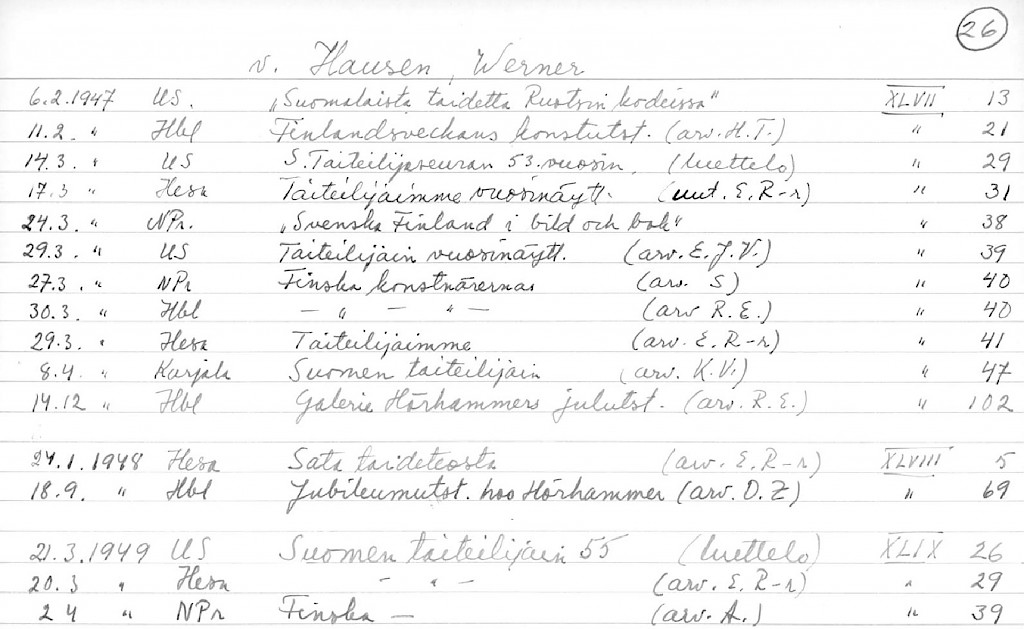 26
v. Hausen, Werner
6.2.1947 US. „Suomalaista taidetta Ruotsin kodeissa" XLVII 13
11.2. " Hbl Finlandsveckans konstutst. (arv. H.T.) " 21
14.3. " US S. Taiteilijaseuran 53. vuosin. (luettelo) " 29
17.3 " Hesa Taiteilijaimme vuosinäytt. (uut. E. R-r) " 31
24.3. " NPr. „Svenska Finland i bild och bok" " 38
29.3. " US Taiteilijain vuosinäytt. (arv. E.J.V.) " 39
27.3. " NPr Finska konstnärernas (arv. S) " 40
30.3. " Hbl — " — " — (arv R.E.) " 40
29.3. " Hesa Taiteilijaimme (arv. E. R-r) " 41
8.4. " Karjala Suomen taiteilijain (arv. K.V.) " 47
14.12 " Hbl Galerie Hörhammers julutst. (arv. R.E.) " 102
24.1.1948 Hesa Sata taideteosta (arv. E. R-r) XLVIII 5
18.9. " Hbl Jubileumutst. hos Hörhammer (arv. O.Z) " 69
21.3.1949 US Suomen taiteilijain 55 (luettelo) XLIX 26
20.3 " Hesa — " — (arv. E. R-r) " 29
24 " NPr Finska — (arv. A.) " 39